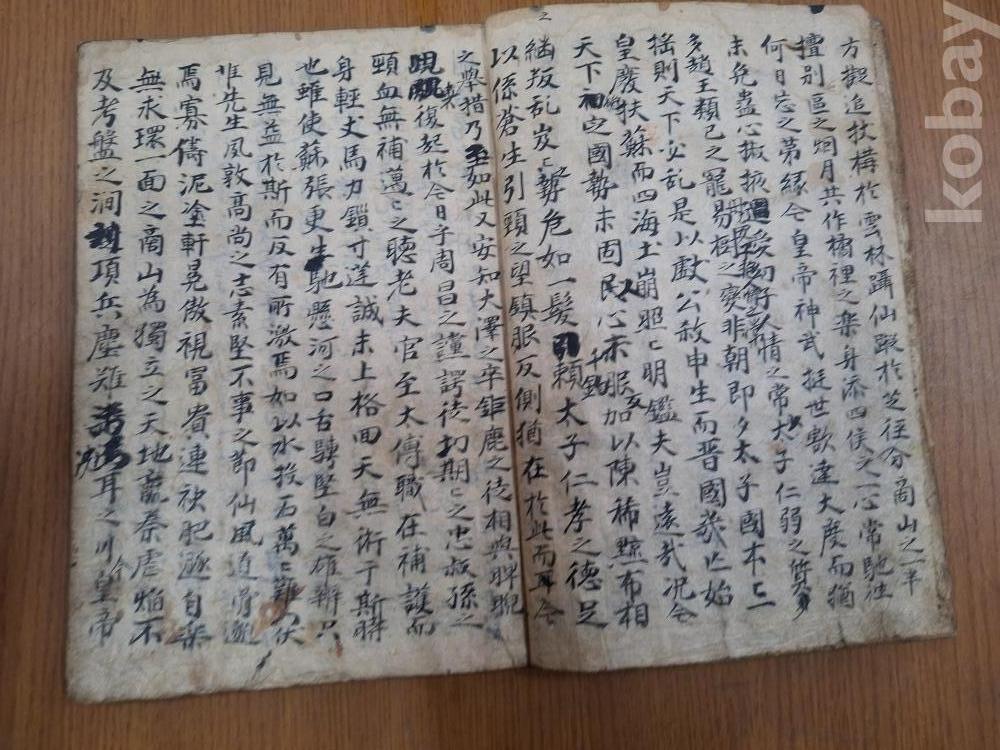 方觀追扙構於雲林躡仙蹤於芝徑分商山之一半
擅別區之烟月共作橘裡之樂身添四侯之一心常馳注
何日忘之第緣今皇帝神武挺世歡達大度而猶
未免蠱心掖幼好人情之常太子仁弱之質
多趙王類己之寵易樹之變非朝卽夕太子國本亡一
搖則天下必亂是以獻公赦申生而晋國幾亡始
皇廢扶蘇而四海土崩昭亡明鑑夫豈遠哉况今
天下初定國勢未固民心未服加以陳稀黥布相
繼叛乱岌亡勢危如一髮賴太子仁孝之德足
以係蒼生引頸之望鎮服反側猶在於此而耳今
之擧措乃至如此又安知大澤之卒鉅鹿之徒相與睥睨
復起於今日乎周昌之謹諤徒切期亡之忠叔孫之
頸血無補萬亡之聽老夫官至太傅職在補護而
身輕丈馬力鎖寸莛誠未上格回天無術于斯時
也雖使蘇張更生馳懸河之口舌騁堅白之雄辨只
見無益於斯而反有所激焉如以水投石萬亡難矣伏
惟先生風敦高尙之志素堅不事之節仙風道骨遯
焉寡儔泥塗軒冕傲視冨貴連袂肥遯自樂
無求環一面之商山為獨立之天地蘦秦虐焰不
及考盤之澗項兵塵難洗耳之川皇帝
kobay